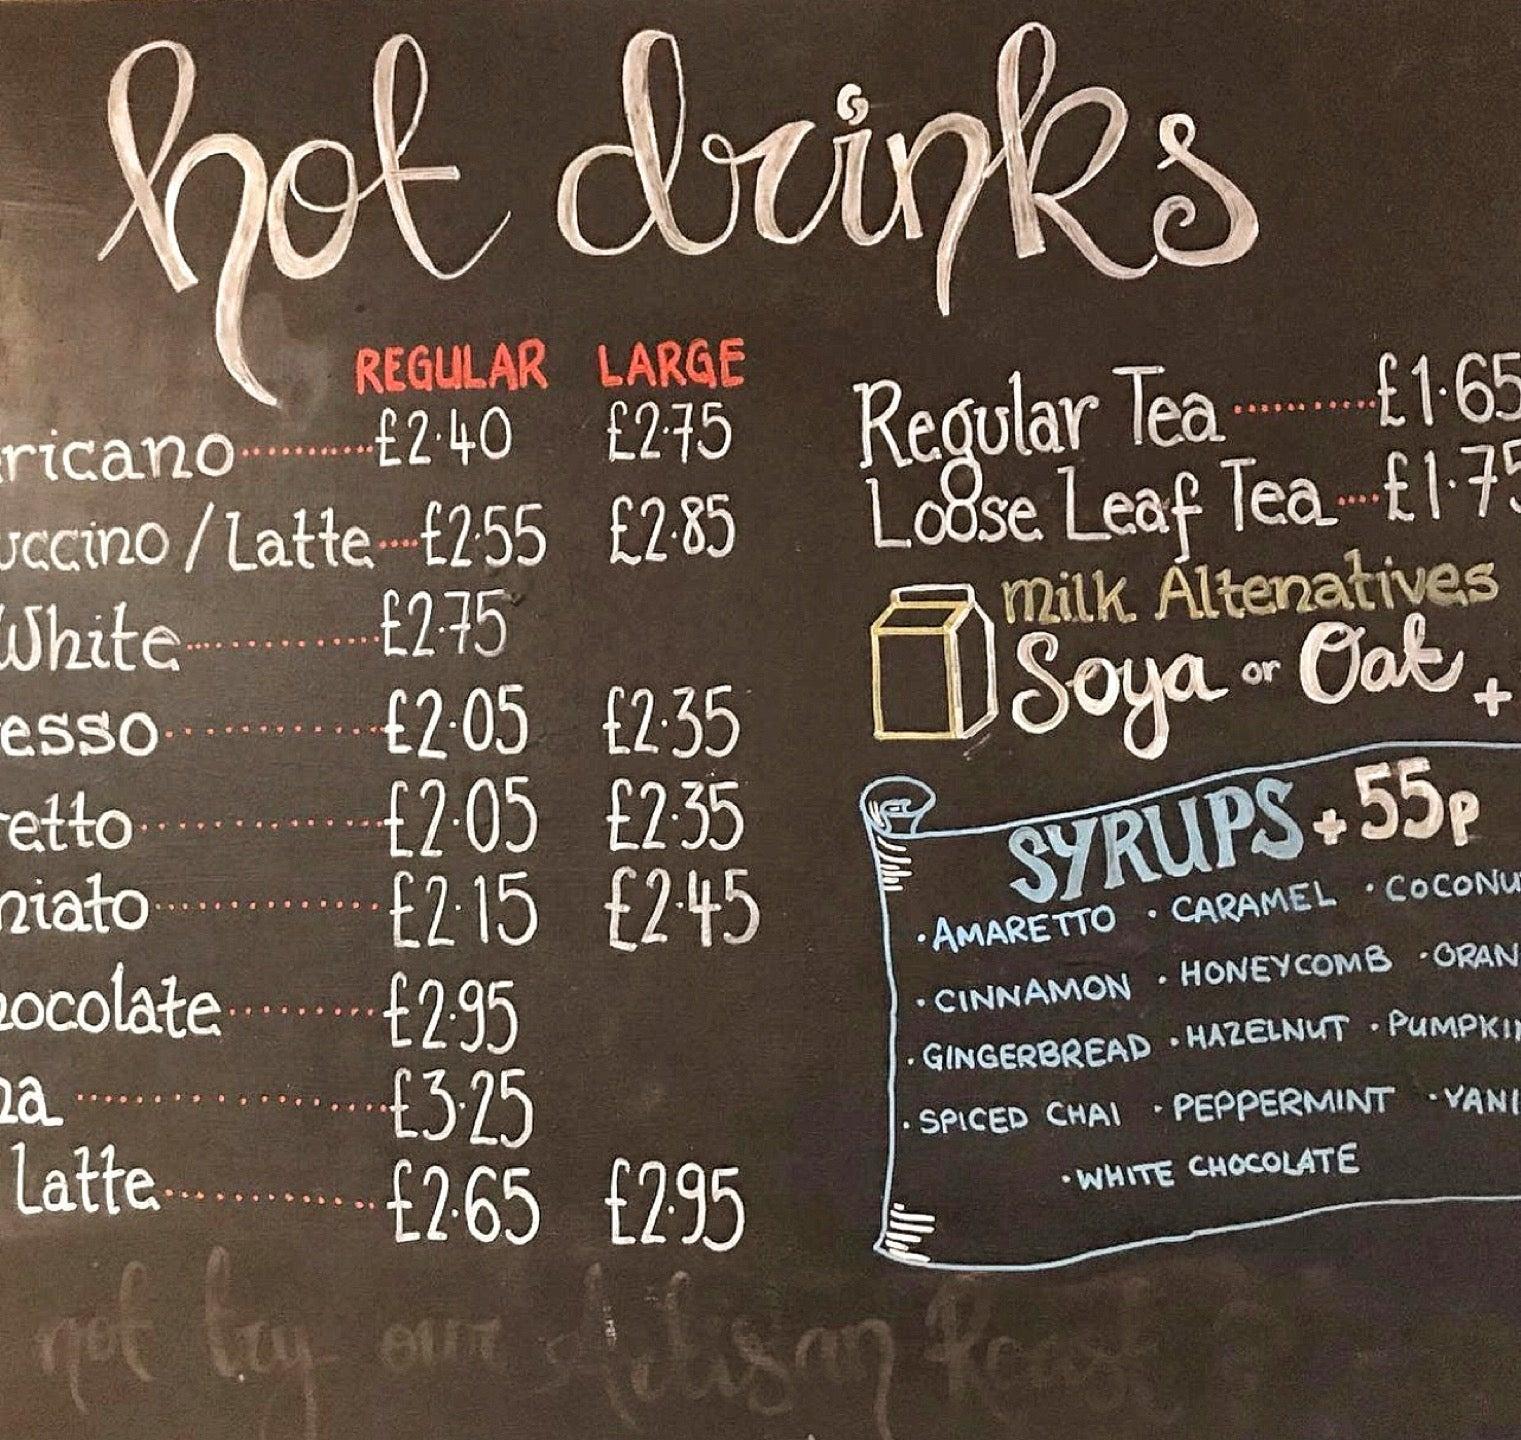 hot drinks
REGULAR LARGE
ricano £2.40 £2.75
uccino / Latte £2.55 £2.85
White £2.75
esso £2.05 £2.35
retto £2.05 £2.35
hiato £2.15 £2.45
hocolate £2.95
ha £3.25
Latte £2.65 £2.95
Regular Tea £1.65
Loose Leaf Tea £1.75
Milk Altenatives
Soya or Oat +
SYRUPS + 55p
· AMARETTO · CARAMEL · COCONU
· CINNAMON · HONEYCOMB · ORAN
· GINGERBREAD · HAZELNUT · PUMPKIN
· SPICED CHAI · PEPPERMINT · VANI
· WHITE CHOCOLATE
not try our Artisan Roast ?